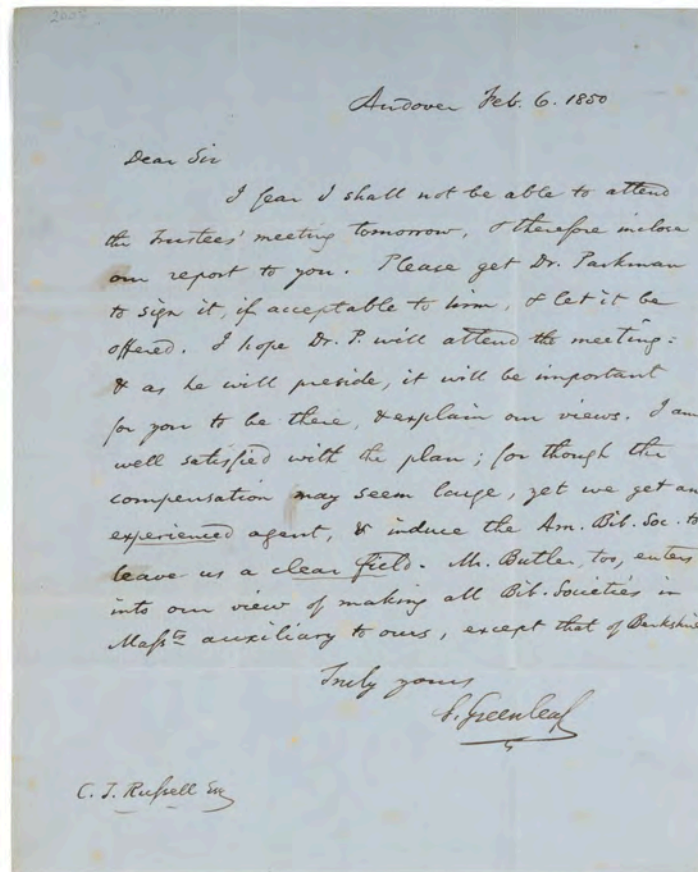 2007
Andover Feb. 6. 1850
Dear Sir
I fear I shall not be able to attend
the Trustees' meeting tomorrow, & therefore inclose
our report to you. Please get Dr. Parkman
to sign it, if acceptable to him, & let it be
offered. I hope Dr. P. will attend the meeting:
& as he will preside, it will be important
for you to be there, & explain our views. I am
well satisfied with the plan; for though the
compensation may seem large, yet we get an
experienced agent, & induce the Am. Bib. Soc. to
leave us a clear field. Mr. Butler, too, enters
into our view of making all Bib. Societies in
Massts auxiliary to ours, except that of Berkshire
Truly yours
S. Greenleaf
C. T. Russell Esq